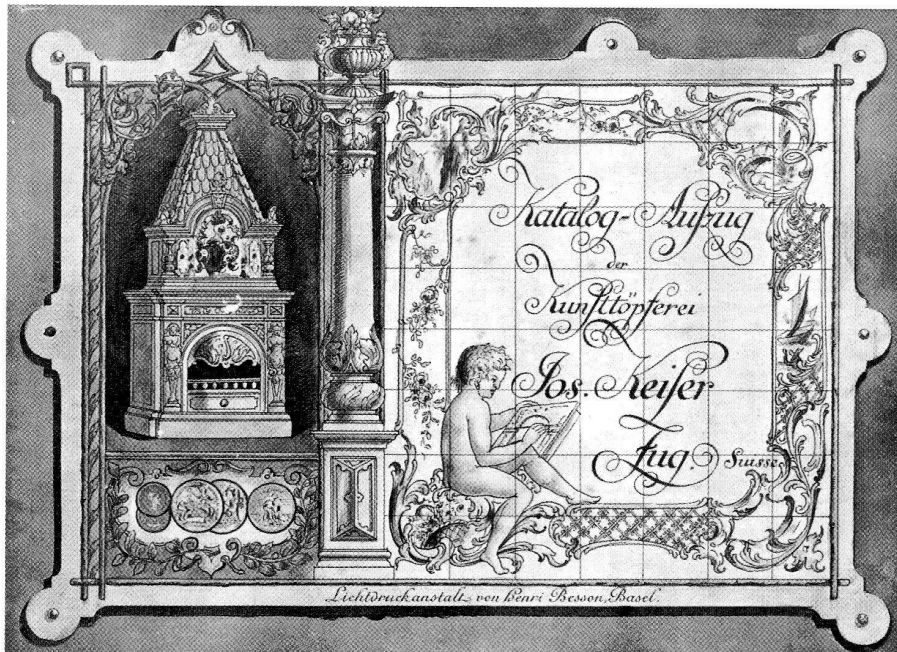 Katalog-Auszug
der
Kunsttöpferei
Jos. Keiser
Zug. Suisse
Lichtdruckanstalt von Henri Besson, Basel.